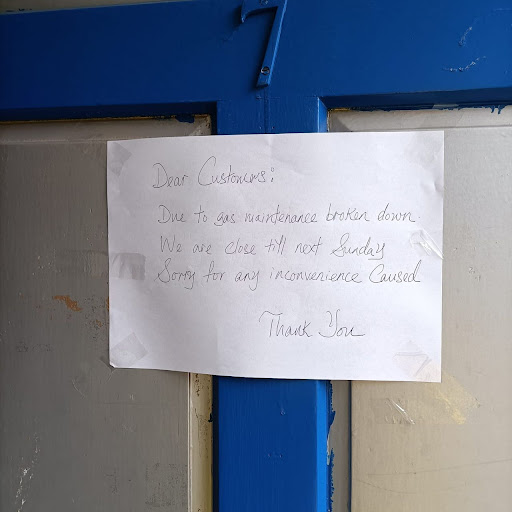 7
Dear Customers:
Due to gas maintenance broken down.
We are close till next Sunday
Sorry for any inconvenience Caused
Thank You